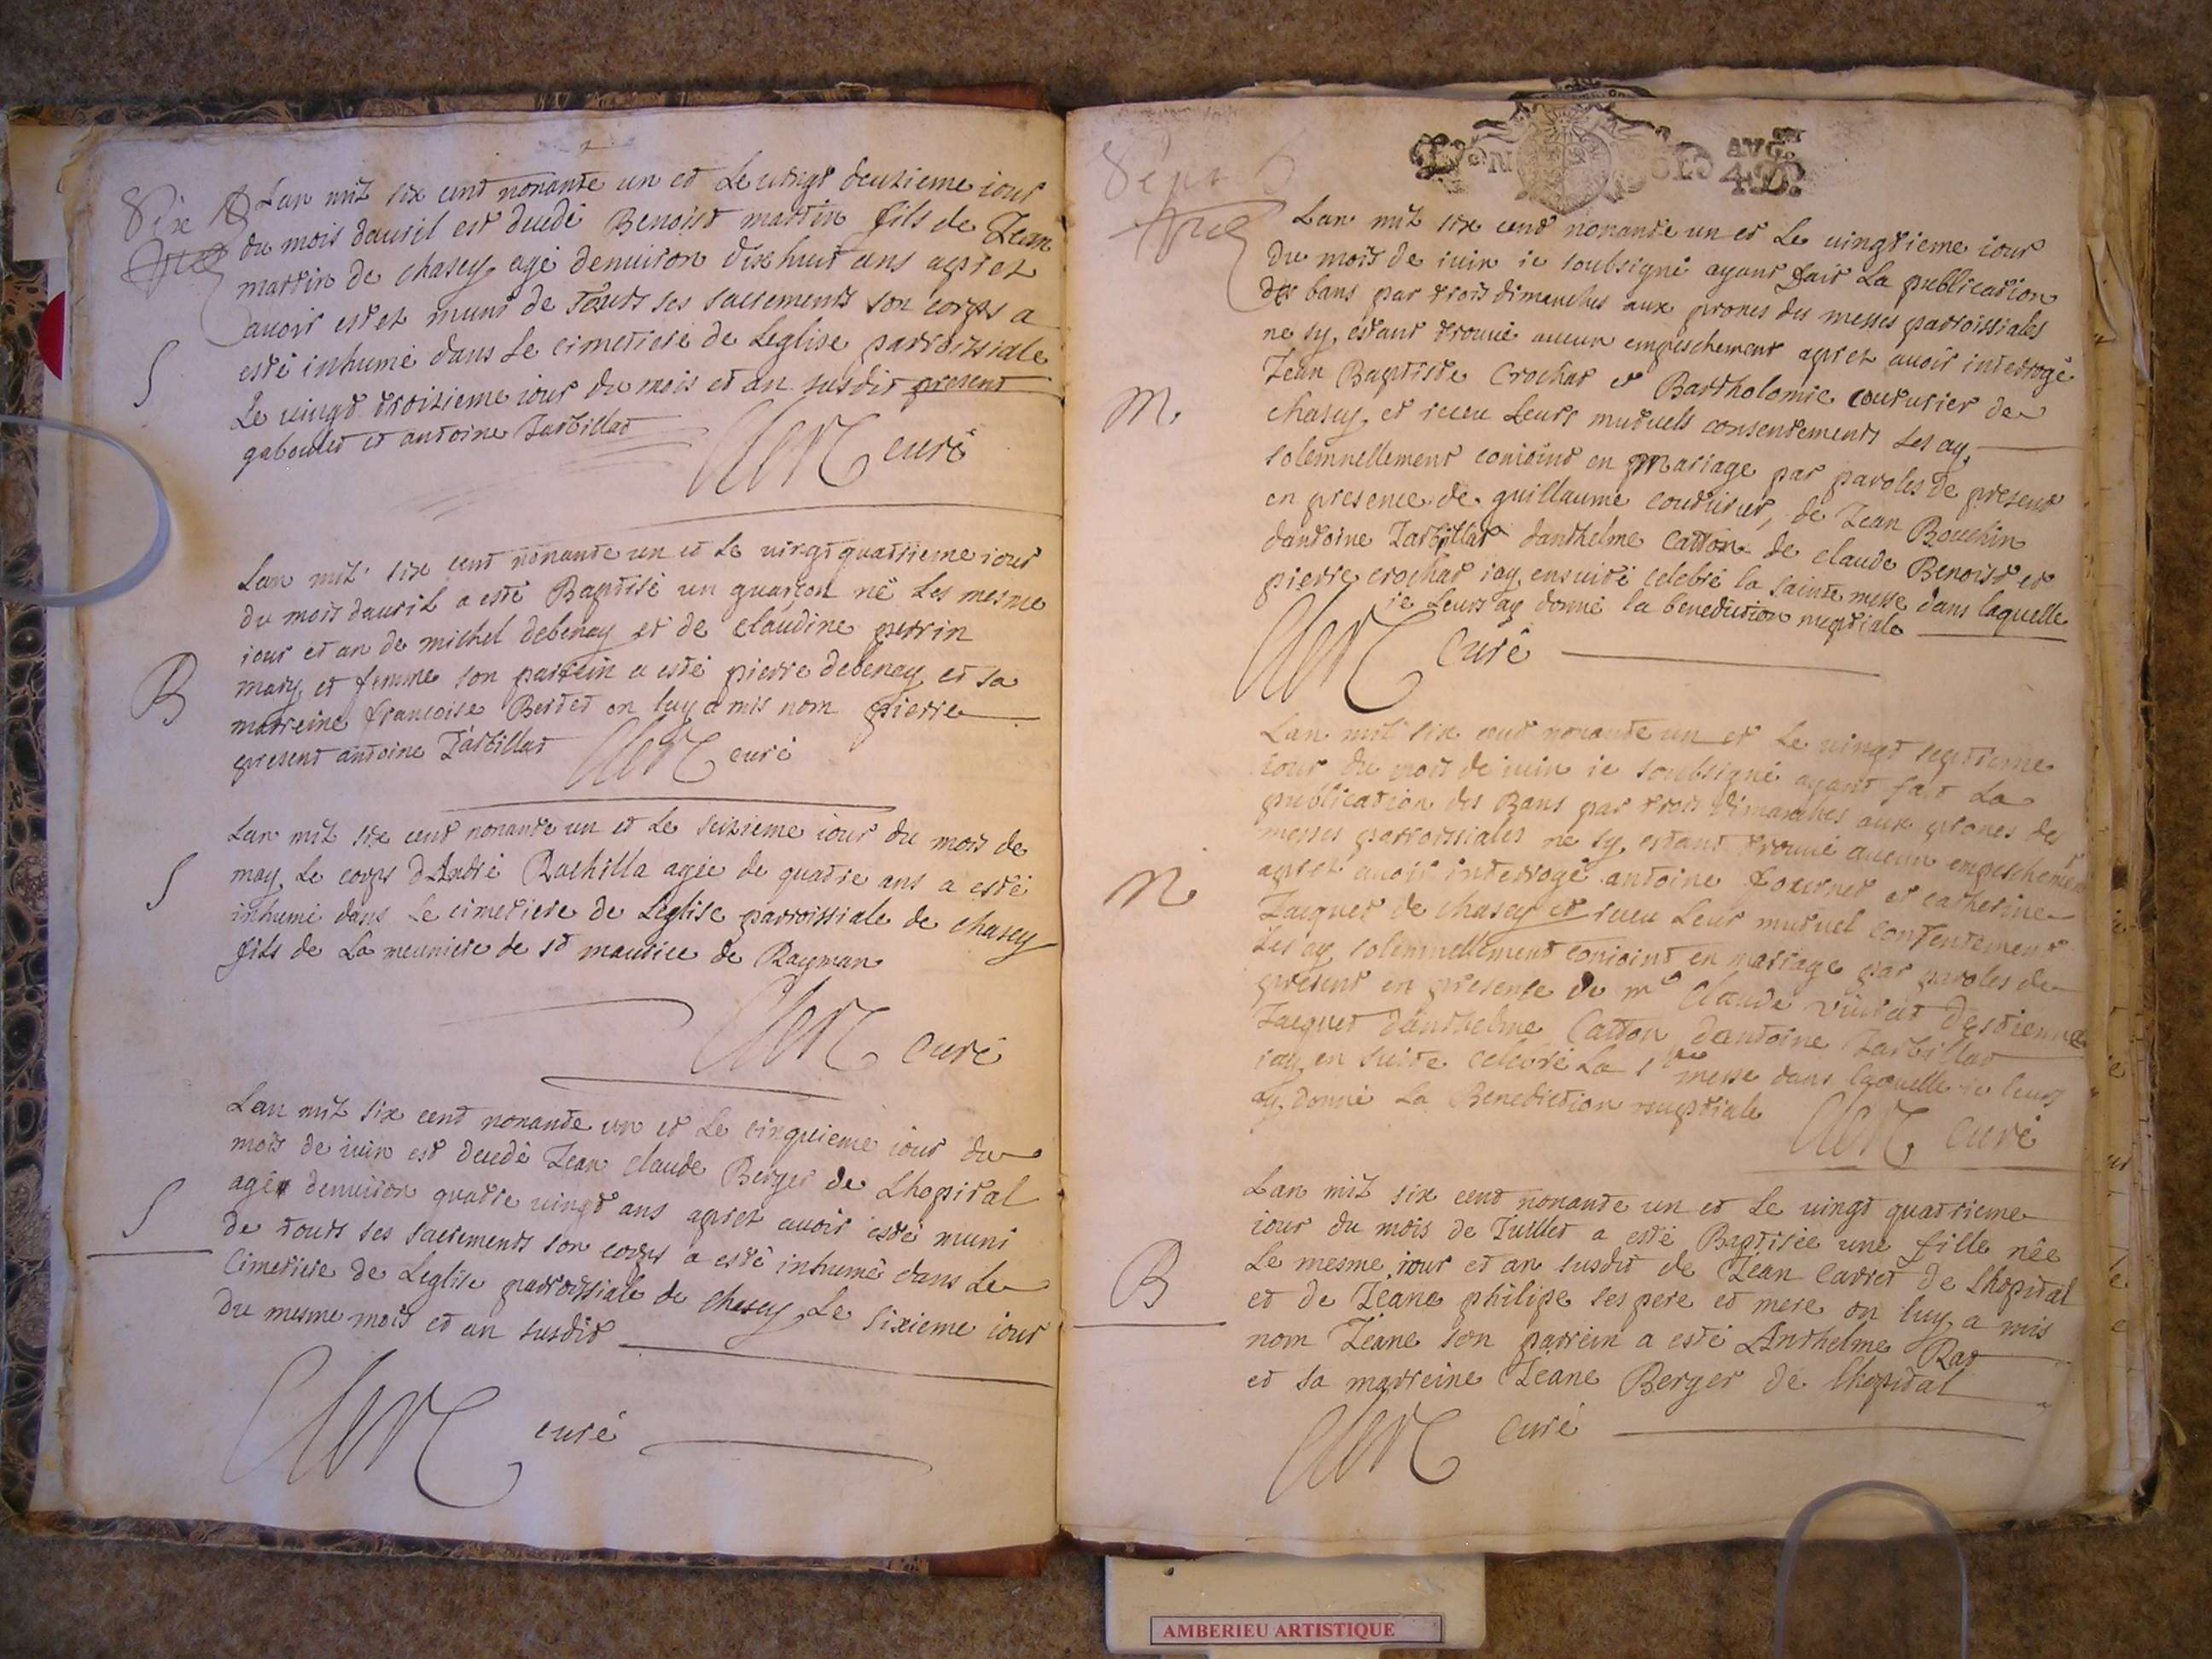 Lan mil six cent nonante un et Le vingt deuxieme iour
du mois dauril est decedé Benoist martin fils de Jean
martin de chasey agé denuiron dix huit ans apres
auoir estez muni de touts ses sacrements son corps a
esté inhumé dans Le cimetiere de Leglise parroissiale
Le uingt troizieme iour du mois et an susdit present
gaboulet et antoine Tarbillat
Clerc curé
S
Lan mil six cent nonante un et Le vingt quatrieme iour
du mois dauril a esté Baptisé un guarçon né Les mesme
iour et an de michel debenay et de claudine perrin
mary et femme son parrein a esté pierre debenay et sa
marreine francoise Bertet on luy a mis nom pierre
present antoine Tarbillat Clerc curé
B
Lan mil six cent nonante un et Le seizieme iour du mois de
may Le corps dAndré Rachilla agée de quatre ans a esté
inhumé dans Le cimetiere de Leglise parroissiale de chasey
fils de La meuniere de st maurice de Rayman
Clerc curé
S
Lan mil six cent nonante un et Le cinquieme iour du
mois de iuin est decedé Jean claude Berger de Lhopital
agé denuiron quatre uingt ans apres auoir esté muni
de touts ses sacrements son corps a esté inhumé dans Le
Cimetiere de Leglise parroissiale de chasey Le sixieme iour
du mesme mois et an susdit
Clerc curé
S
GEN AVG.
4D.
Lan mil six cent nonante un et Le uingtieme iour
du mois de iuin ie soubsigné ayant fait La publication
des bans par trois dimanches aux prones des messes parroissiales
ne sy estant trouué aucun empeschement apres auoir interrogé
Jean Baptiste Crochat et Bartholomie couturier de
chasey et receu Leurs mutuels consentements Les ay
solemnellement conioint en mariage par paroles de present
en presence de guillaume couturier, de Jean Bouchin
dantoine Tarbillat danthelme Catton de claude Benoist et
pierre crochat iay ensuite celebré la sainte messe dans laquelle
ie Leurs ay donné la benediction nuptiale
Clerc Curé
M
Lan mil six cent nonante un et Le uingt septieme
iour du mois de iuin ie soubsigné ayant fait La
publication des Bans par trois dimanches aux prones des
messes parroissiales ne sy estant trouué aucun empeschement
apres auoir interrogé antoine fournet et catherine
Jacquet de chasey et receu Leur mutuel consentement
Les ay solemnellement conioint en mariage par paroles de
present en presence de mre Claude destienne
Jacquet danthelme Catton dantoine Tarbillat
iay en suite celebré La ste messe dans laquelle ie leurs
ay donné La Benediction nuptiale Clerc Curé
M
Lan mil six cent nonante un et Le uingt quatrieme
iour du mois de Juillet a esté Baptisée une fille née
Le mesme iour et an susdit de Jean Carret de Lhopital
et de Jeane philipe ses pere et mere on luy a mis
nom Jeane son parrein a esté Anthelme Rat
et sa marreine Jeane Berger de Lhopital
Clerc Curé
B
AMBERIEU ARTISTIQUE